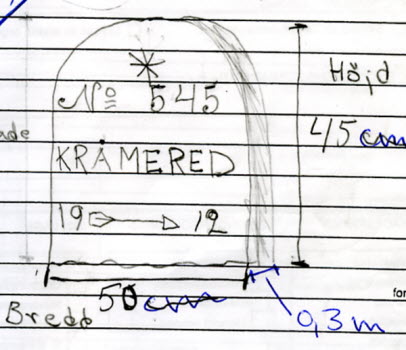 Nº 545
Höjd
45 cm
ade
KRÅMERED
19 12
50 cm
Bredd
0,3 m
for